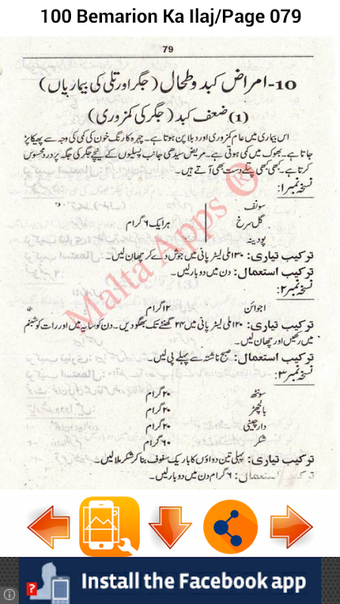 100 Bemarion Ka Ilaj/Page 079
79
10-امراض کبد و طحال (جگر اور تلی کی بیماریاں)
(1) ضعف کبد (جگر کی کمزوری)
اس بیماری میں عام کمزوری اور دبلا پن ہوتا ہے۔ چہرہ کا رنگ خون کی کمی کی وجہ سے پھیکا پڑ
جاتا ہے۔ بھوک میں کمی ہوتی ہے۔ مریض سیدھی جانب پسلیوں کے نیچے جگر کی جگہ پر درد محسوس
کرتا ہے۔ کبھی کبھی پتلے دست بھی آتے ہیں۔
نسخہ نمبر1:
سونف
گل سرخ ہر ایک ۶ گرام
پودینہ
ترکیب تیاری: ۱۳۰ ملی لیٹر پانی میں جوش دے کر چھان لیں۔
ترکیب استعمال: دن میں دو بار لیں۔
نسخہ نمبر2:
اجوائن ۱۲ گرام
ترکیب تیاری: ۱۲۰ ملی لیٹر پانی میں ۲۴ گھنٹے تک بھگو دیں۔ دن کو سایہ میں اور رات کو شبنم
میں رکھیں اور چھان لیں۔
ترکیب استعمال: صبح ناشتہ سے پہلے پی لیں۔
نسخہ نمبر3:
سونٹھ ۲۰ گرام
بالچھڑ ۲۰ گرام
دارچینی ۲۰ گرام
شکر ۶۰ گرام
ترکیب تیاری: پہلی تین دواؤں کا باریک سفوف بنا کر شکر ملا لیں۔
ترکیب استعمال: ۶ گرام دن میں دو بار لیں۔
Malta Apps ®
Install the Facebook app